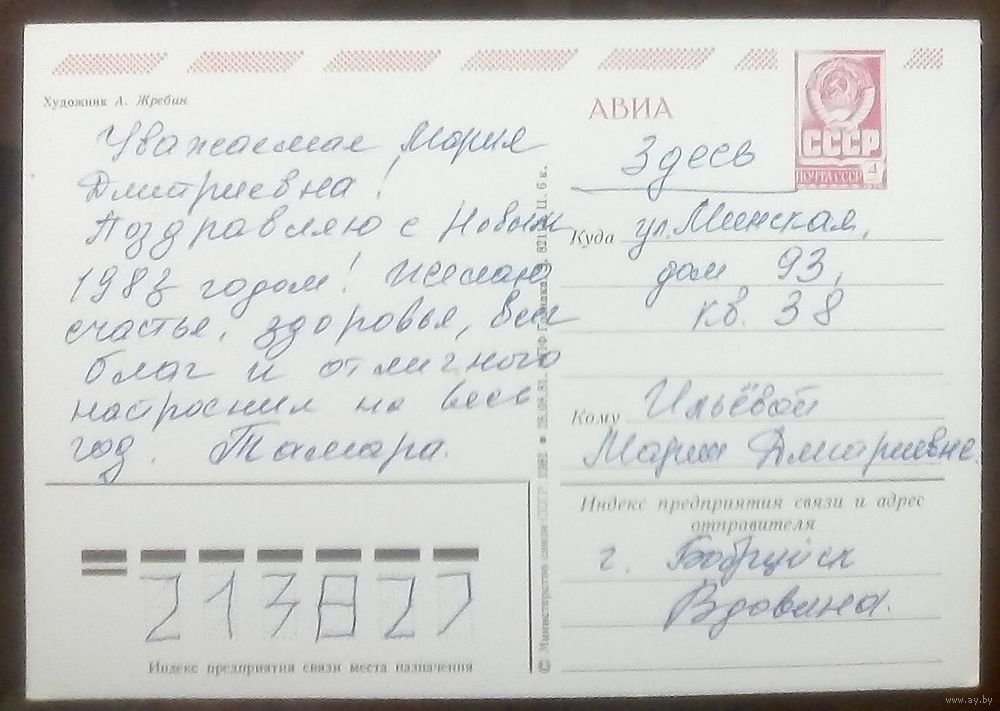 Художник А. Жребин
Уважаемая Мария
Дмитриевна!
Поздравляю с Новым
1983 годом! Желаю
счастья, здоровья, всех
благ и отличного
настроения на весь
год. Тамара.
АВИА
СССР
ПОЧТА СССР 4
Здесь
Куда ул. Минская,
дом 93,
кв. 38
Кому Ильёвой
Марии Дмитриевне.
Индекс предприятия связи и адрес
отправителя
г. Бобруйск
Вдовина.
213827
Индекс предприятия связи места назначения
© Министерство связи СССР. 1981 • 28.08.81. Ц. 6 к.
www.ay.by